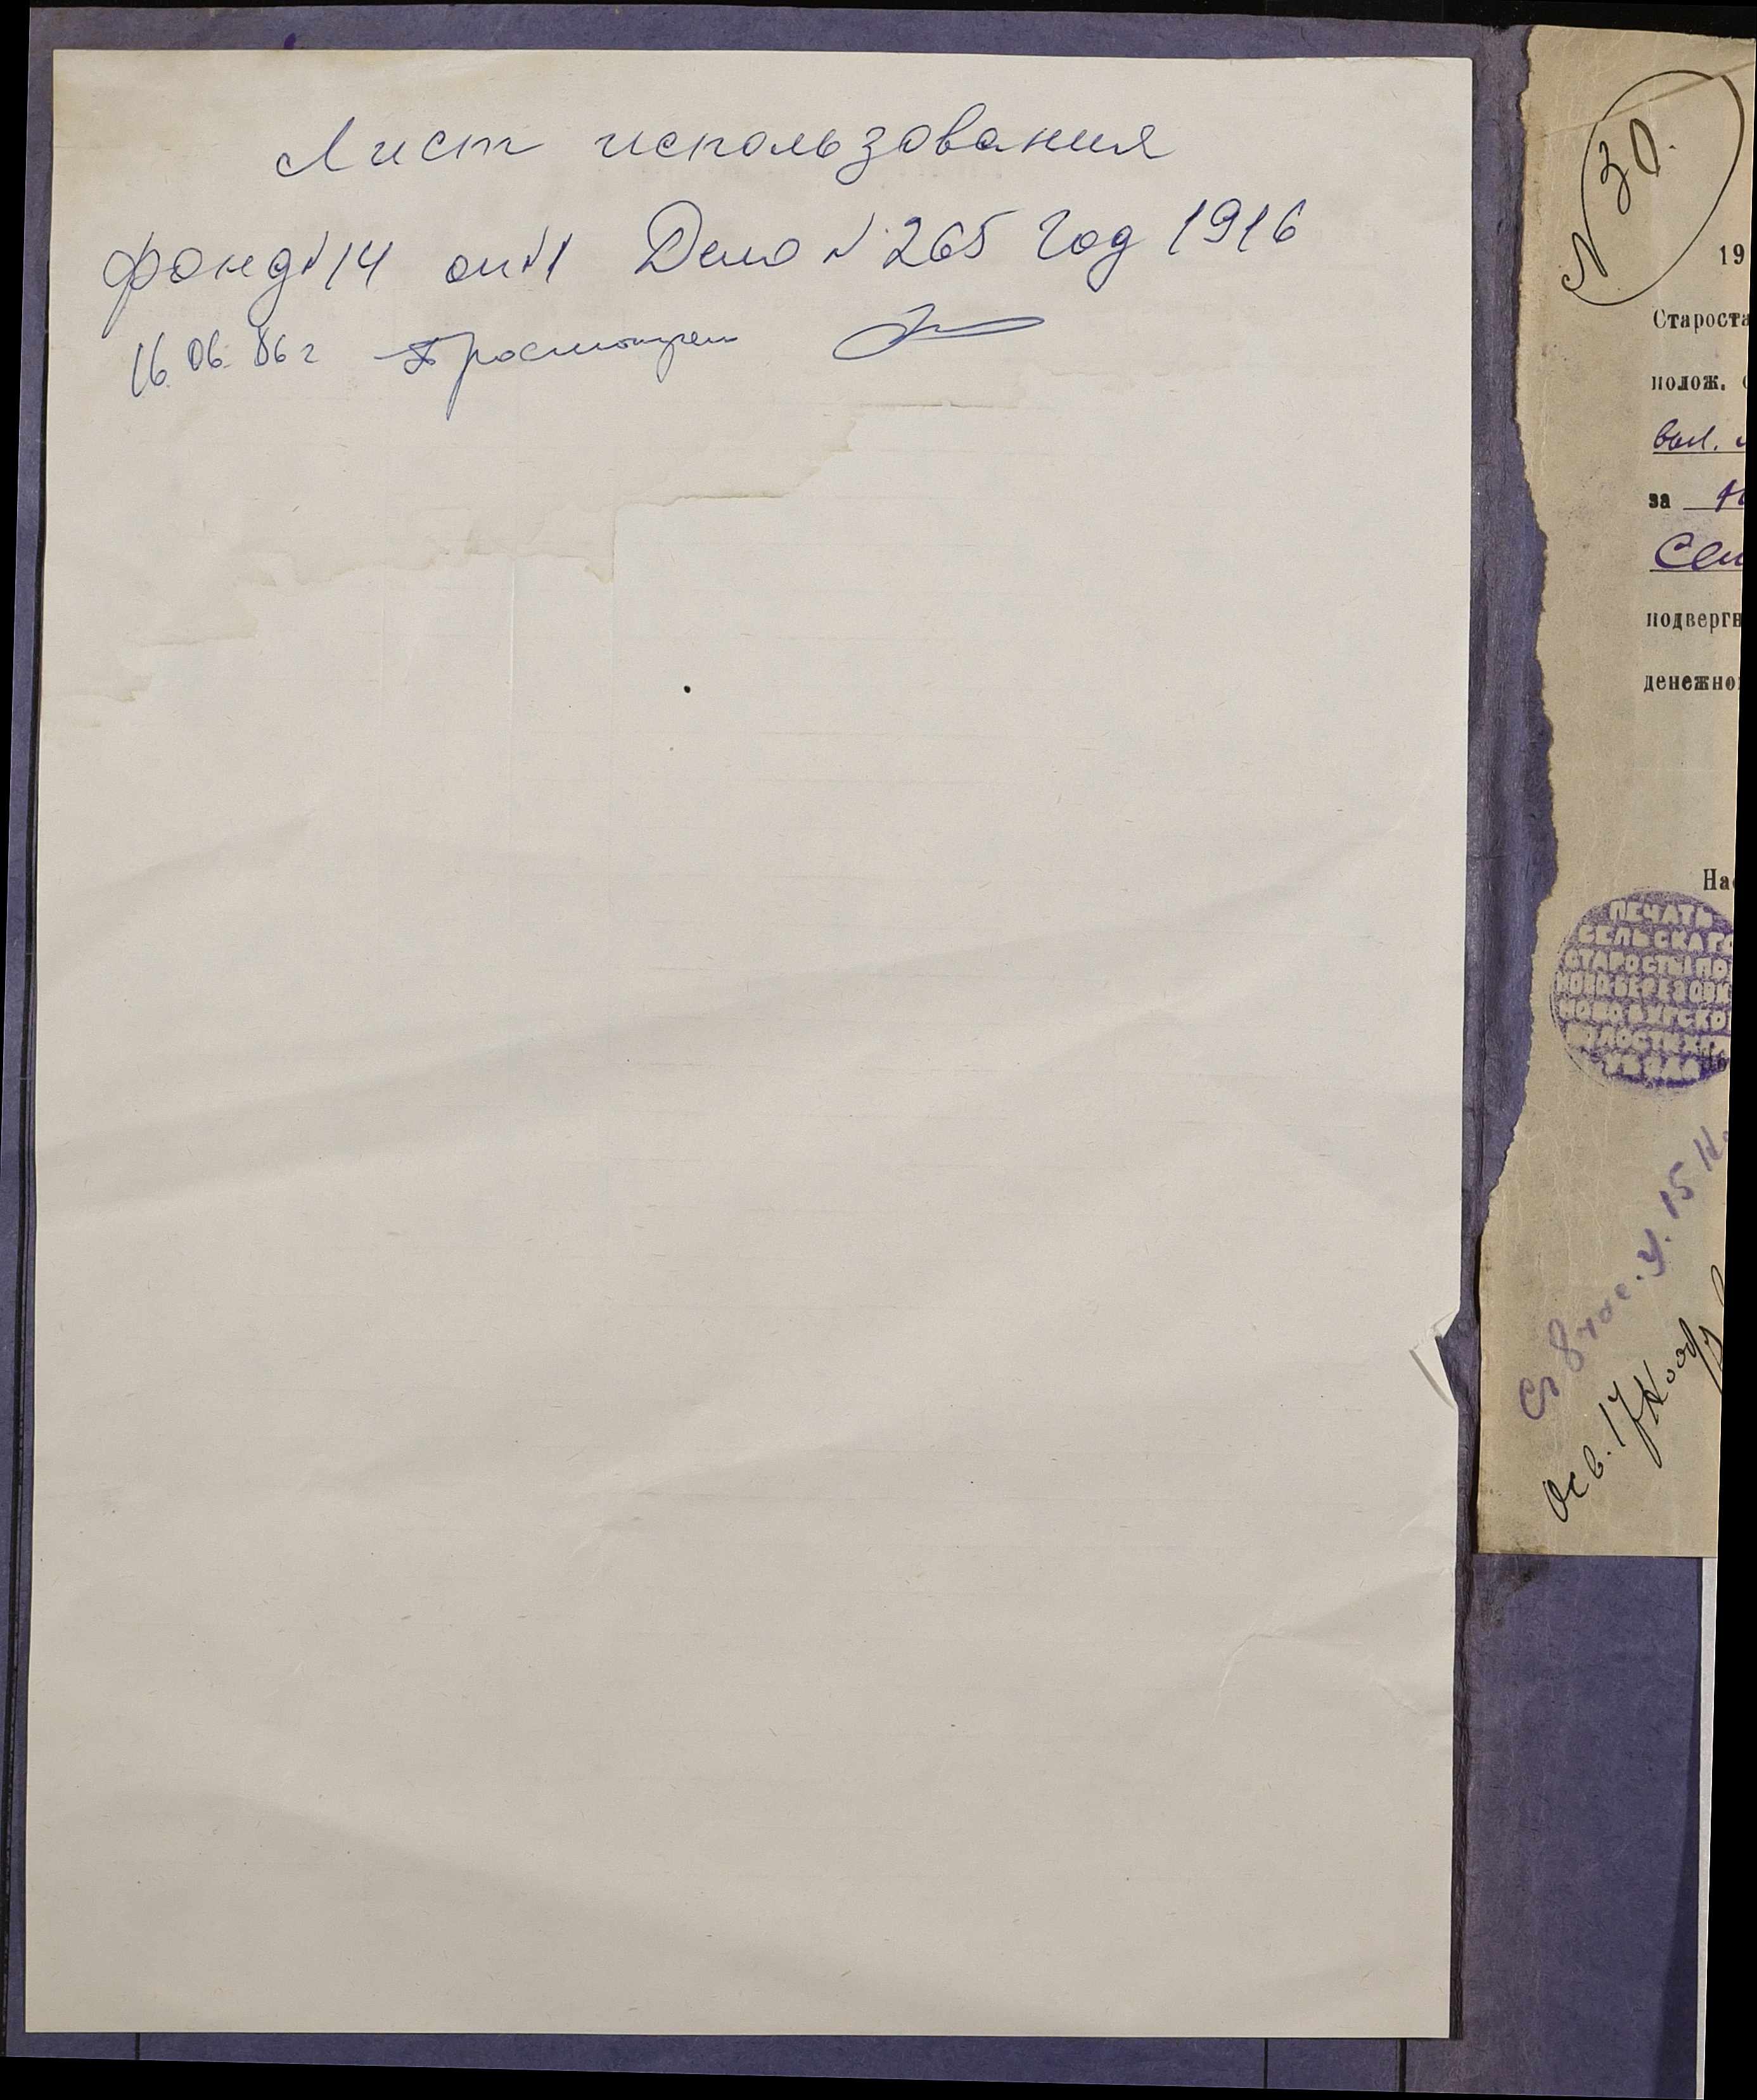 Лист использования
Фонд №14 оп №1 Дело № 265 Год 1916
16.06.86 г Просмотрен
№ 30.
19
Староста
полож.
вол.
за
подвергн
денежно
На
ПЕЧАТЬ
СЕЛЬСКАГО
СТАРОСТЫ ПО
НОВОБУГСКО
ВОЛОСТИ Х
УѢЗДА
Съ 8 час. у. 15 Н
Осв. 17 Нояб